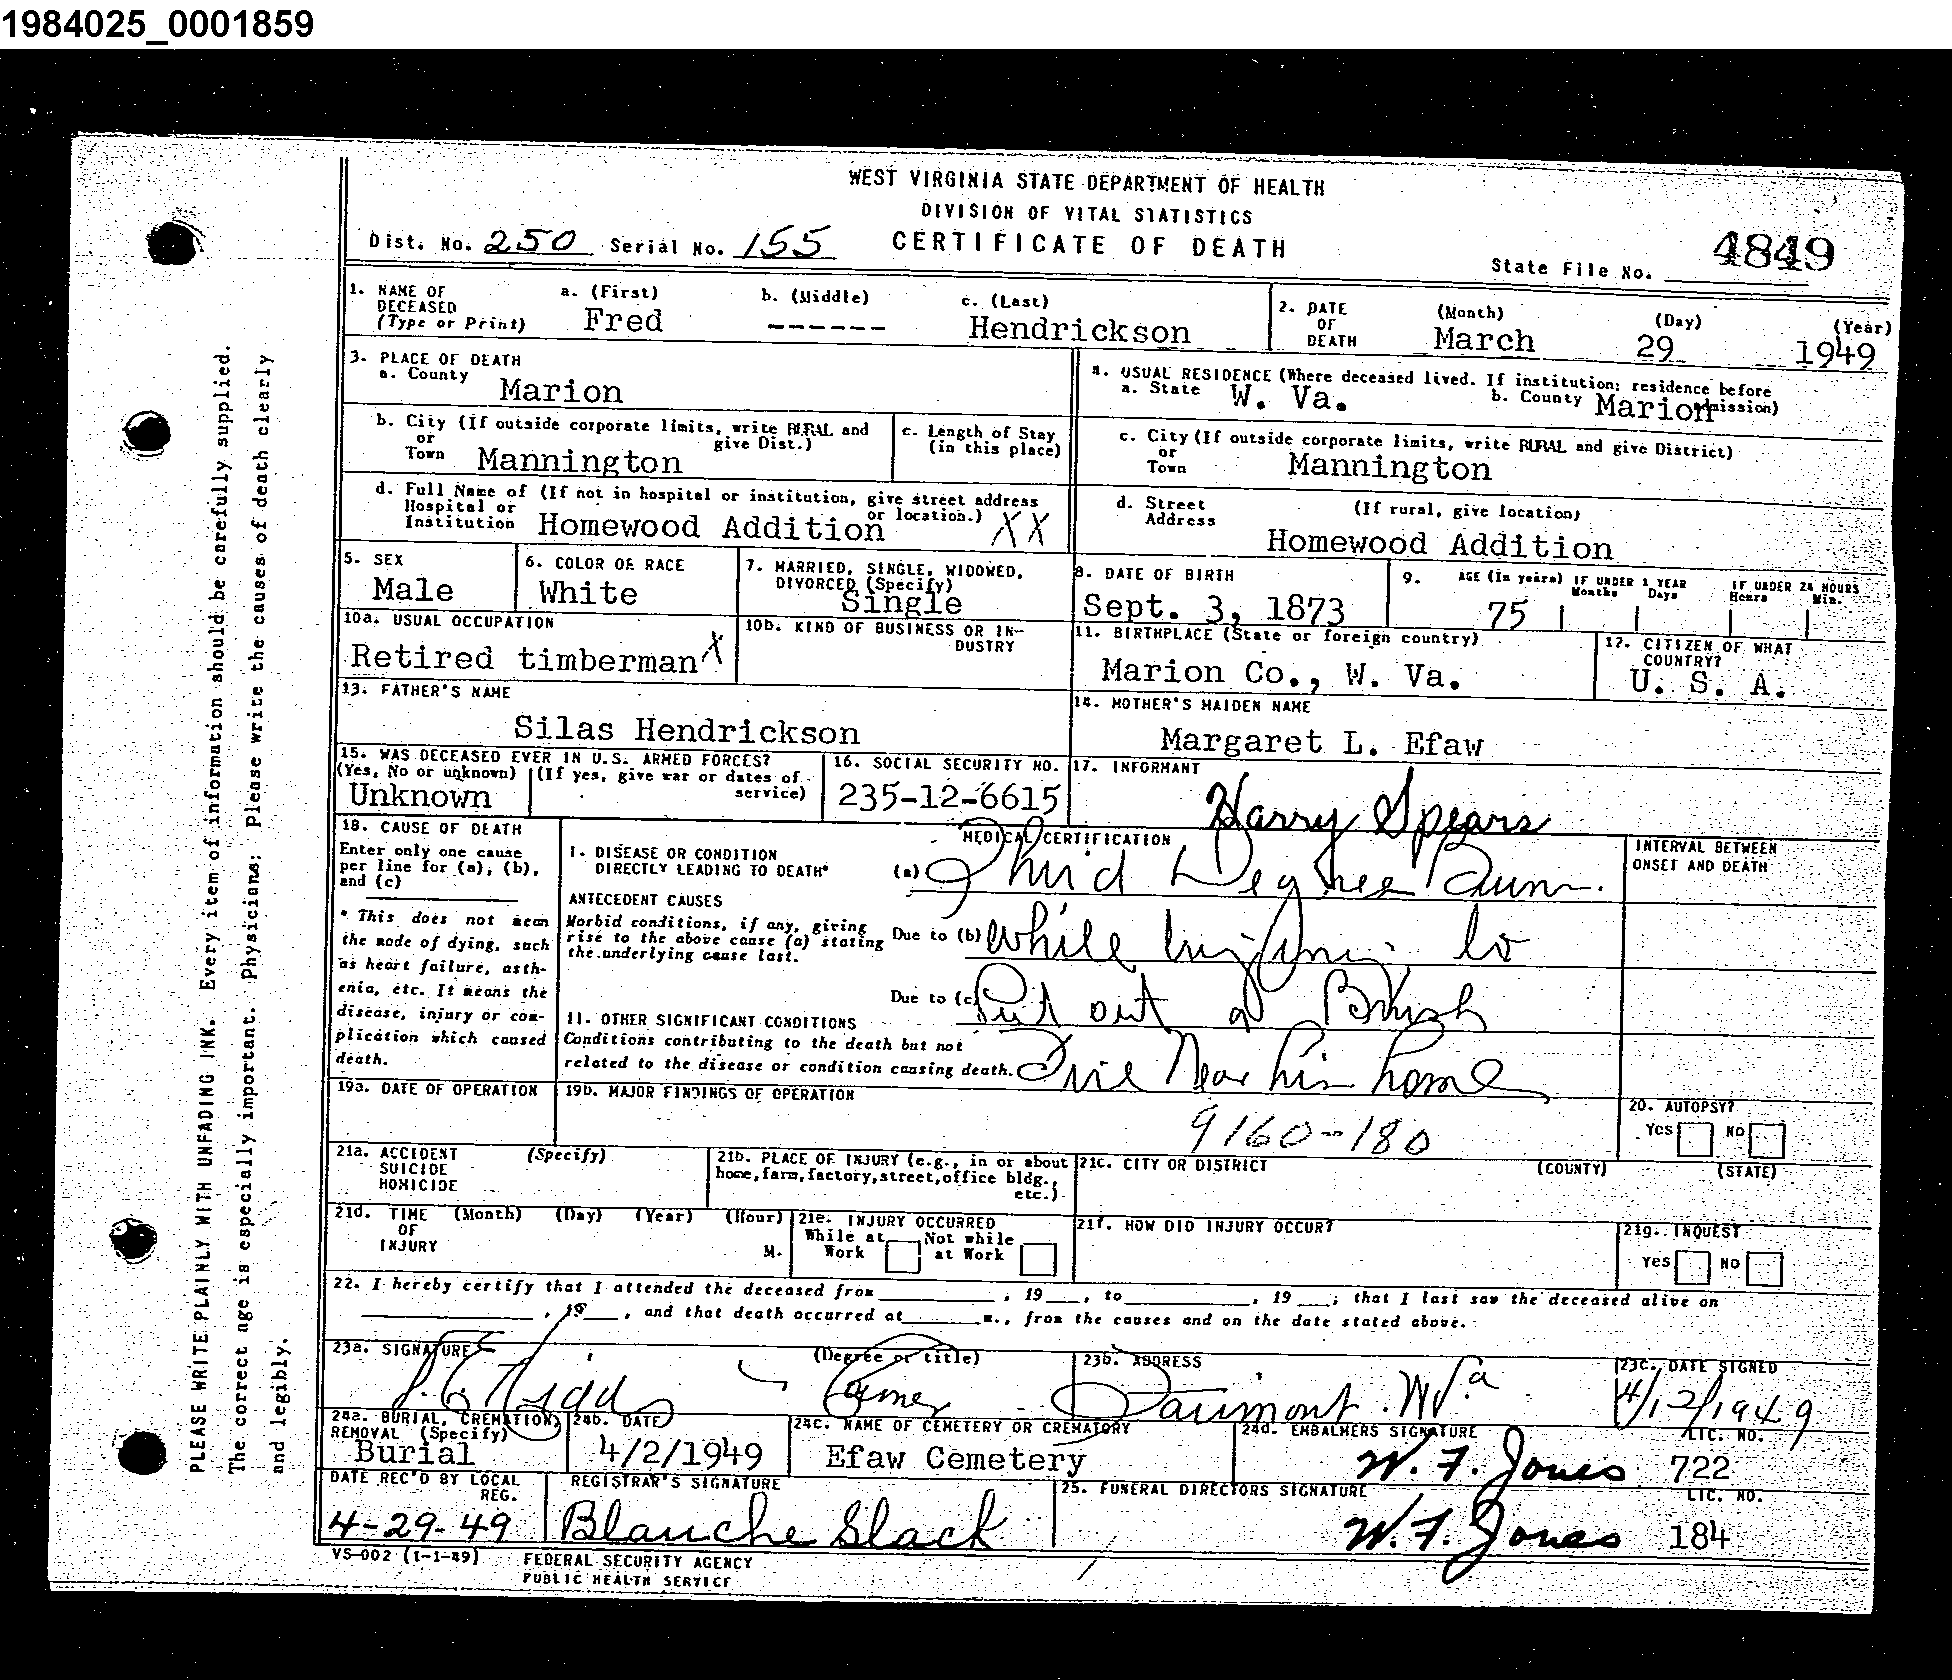 1984025_0001859
WEST VIRGINIA STATE DEPARTMENT OF HEALTH
DIVISION OF VITAL STATISTICS
Dist. No. 250 Serial No. 155 CERTIFICATE OF DEATH
State File No. 4849
1. NAME OF DECEASED (Type or Print) a. (First) Fred b. (Middle) ------ c. (Last) Hendrickson
2. DATE OF DEATH (Month) March (Day) 29 (Year) 1949
3. PLACE OF DEATH
a. County Marion
4. USUAL RESIDENCE (Where deceased lived. If institution: residence before admission)
a. State W. Va. b. County Marion
b. City (If outside corporate limits, write RURAL and give Dist.) or Town Mannington
c. Length of Stay (in this place)
c. City (If outside corporate limits, write RURAL and give District) or Town Mannington
d. Full Name of (If not in hospital or institution, give street address or location.) Hospital or Institution Homewood Addition XX
d. Street Address (If rural, give location) Homewood Addition
5. SEX Male
6. COLOR OR RACE White
7. MARRIED, SINGLE, WIDOWED, DIVORCED (Specify) Single
8. DATE OF BIRTH Sept. 3, 1873
9. AGE (In years) 75 IF UNDER 1 YEAR Months Days IF UNDER 24 HOURS Hours Min.
10a. USUAL OCCUPATION Retired timberman X
10b. KIND OF BUSINESS OR INDUSTRY
11. BIRTHPLACE (State or foreign country) Marion Co., W. Va.
12. CITIZEN OF WHAT COUNTRY? U. S. A.
13. FATHER'S NAME Silas Hendrickson
14. MOTHER'S MAIDEN NAME Margaret L. Efaw
15. WAS DECEASED EVER IN U.S. ARMED FORCES? (Yes, No or unknown) Unknown (If yes, give war or dates of service)
16. SOCIAL SECURITY NO. 235-12-6615
17. INFORMANT Harry Spears
18. CAUSE OF DEATH
Enter only one cause per line for (a), (b), and (c)
* This does not mean the mode of dying, such as heart failure, asthenia, etc. It means the disease, injury or complication which caused death.
MEDICAL CERTIFICATION
INTERVAL BETWEEN ONSET AND DEATH
I. DISEASE OR CONDITION DIRECTLY LEADING TO DEATH* (a) Third Degree Burn.
ANTECEDENT CAUSES
Morbid conditions, if any, giving rise to the above cause (a) stating the underlying cause last.
Due to (b) While trying to
Due to (c) Put out a Brush
II. OTHER SIGNIFICANT CONDITIONS
Conditions contributing to the death but not related to the disease or condition causing death. Fire Near his home
19a. DATE OF OPERATION
19b. MAJOR FINDINGS OF OPERATION
9160-180
20. AUTOPSY? Yes NO
21a. ACCIDENT SUICIDE HOMICIDE (Specify)
21b. PLACE OF INJURY (e.g., in or about home, farm, factory, street, office bldg., etc.)
21c. CITY OR DISTRICT (COUNTY) (STATE)
21d. TIME OF INJURY (Month) (Day) (Year) (Hour) M.
21e. INJURY OCCURRED While at Work Not while at Work
21f. HOW DID INJURY OCCUR?
21g. INQUEST Yes NO
22. I hereby certify that I attended the deceased from , 19 , to , 19 ; that I last saw the deceased alive on
, 19 , and that death occurred at m., from the causes and on the date stated above.
23a. SIGNATURE (Degree or title)
23b. ADDRESS Fairmont W Va
23c. DATE SIGNED 4/12/1949
24a. BURIAL, CREMATION, REMOVAL (Specify) Burial
24b. DATE 4/2/1949
24c. NAME OF CEMETERY OR CREMATORY Efaw Cemetery
24d. EMBALMERS SIGNATURE W. F. Jones LIC. NO. 722
DATE REC'D BY LOCAL REG. 4-29-49
REGISTRAR'S SIGNATURE Blanche Slack
25. FUNERAL DIRECTORS SIGNATURE W. F. Jones LIC. NO. 184
VS-002 (1-1-49) FEDERAL SECURITY AGENCY
PUBLIC HEALTH SERVICE
PLEASE WRITE PLAINLY WITH UNFADING INK. Every item of information should be carefully supplied.
The correct age is especially important. Physicians: Please write the causes of death clearly
and legibly.